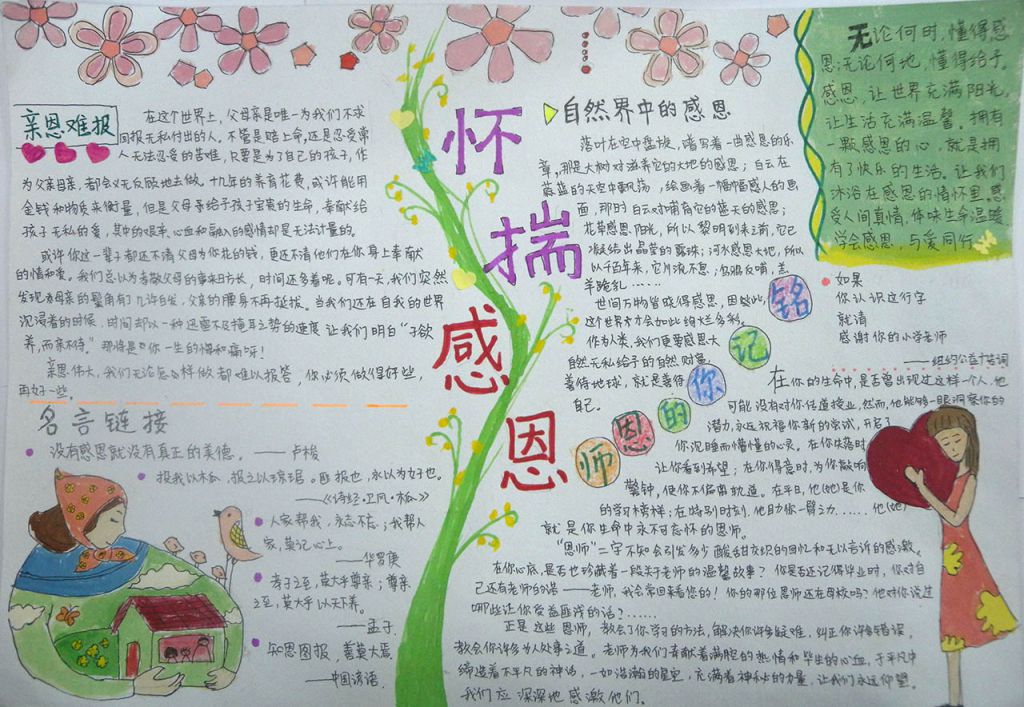 亲恩难报
在这个世界上，父母亲是唯一为我们不求
回报无私付出的人，不管是赔上命，还是忍受常
人无法忍受的苦难，只要是为了自己的孩子，作
为父亲母亲，都会义无反顾地去做。十几年的养育花费，或许能用
金钱和物质来衡量，但是父母亲给予孩子宝贵的生命，奉献给
孩子无私的爱，其中的艰辛、心血和融入的感情却是无法计量的。
或许你这一辈子都还不清父母为你花的钱，更还不清他们在你身上奉献
的情和爱。我们总以为孝敬父母的事来日方长，时间还多着呢。可有一天，我们突然
发现，母亲的鬓角有了几许白发，父亲的腰身不再挺拔。当我们还在自我的世界
沉浸着的时候，时间却以一种迅雷不及掩耳之势的速度让我们明白“子欲
养，而亲不待。”那将是你一生的悔和痛呀！
亲恩伟大，我们无论怎么样做都难以报答，你必须做得好些，
再好一些。
名言链接
没有感恩就没有真正的美德。——卢梭
投我以木瓜，报之以琼琚。匪报也，永以为好也。
——《诗经·卫风·木瓜》
人家帮我，永志不忘；我帮人
家，莫记心上。
——华罗庚
孝子之至，莫大乎尊亲；尊亲
之至，莫大乎以天下养。
——孟子
知恩图报，善莫大焉
——中国谚语
怀揣感恩
自然界中的感恩
落叶在空中盘旋，谱写着一曲感恩的乐
章，那是大树对滋养它的大地的感恩；白云在
蔚蓝的天空中飘荡，绘画着一幅幅感人的画
面，那时白云对哺育它的蓝天的感恩；
花草感恩阳光，所以黎明到来之前，它已
凝结出晶莹的露珠；河水感恩大地，所以
以千百年来，它川流不息；乌鸦反哺，羔
羊跪乳……
世间万物皆晓得感恩，因此，
这个世界才会如此绚烂多彩。
作为人类，我们更要感恩大
自然无私给予的自然财富，
善待地球，就是善待
自己。
无论何时，懂得感
恩；无论何地，懂得给予。
感恩，让世界充满阳光，
让生活充满温馨。拥有
一颗感恩的心，就是拥
有了快乐的生活。让我们
沐浴在感恩的情怀里。感
受人间真情，体味生命温暖
学会感恩，与爱同行。
如果
你认识这行字
就请
感谢你的小学老师
——纽约公益广告词
铭记你的恩师
在你的生命中，是否曾出现过这样一个人，他
可能没有对你传道授业，然而，他能够一眼洞察你的
潜力，永远祝福你新的尝试，开启了
你沉睡而懵懂的心灵。在你失落时，
让你看到希望；在你得意时，为你敲响
警钟，使你不偏离轨道。在平日，他(她)是你
的学习榜样；在特别时刻，他助你一臂之力……他(她)
就是你生命中永不可忘怀的恩师。
“恩师”二字不知会引发多少酸甜交织的回忆和无以言诉的感激。
在你心底，是否也珍藏着一段关于老师的温馨故事？你是否还记得毕业时，你对自
己还有老师的诺——老师，我会常回来看您的！你的那位恩师还在母校吗？他对你说过
哪些让你受益匪浅的话？……
正是这些恩师，教会了你学习的方法，解决你许多疑难，纠正你许多错误，
教会你许多为人处事之道。老师为我们奉献着满腔的热情和毕生的心血，于平凡中
缔造着不平凡的神话，一如浩瀚的星空，充满着神秘的力量，让我们永远仰望。
我们应深深地感激他们。